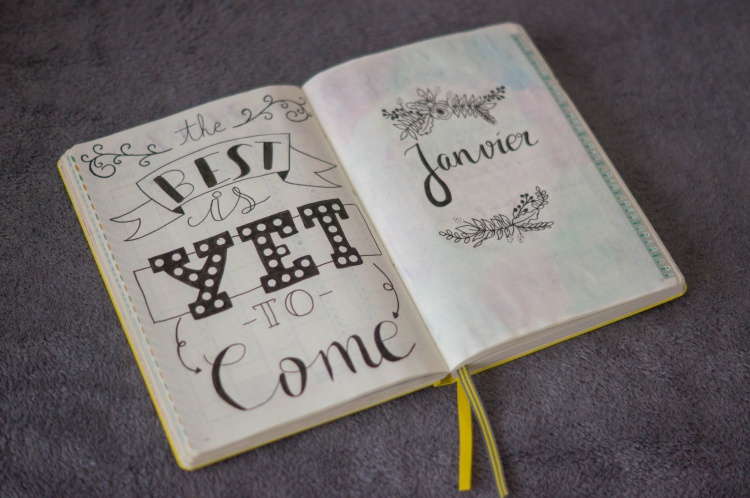 the
BEST
is
YET
-TO-
Come
Janvier